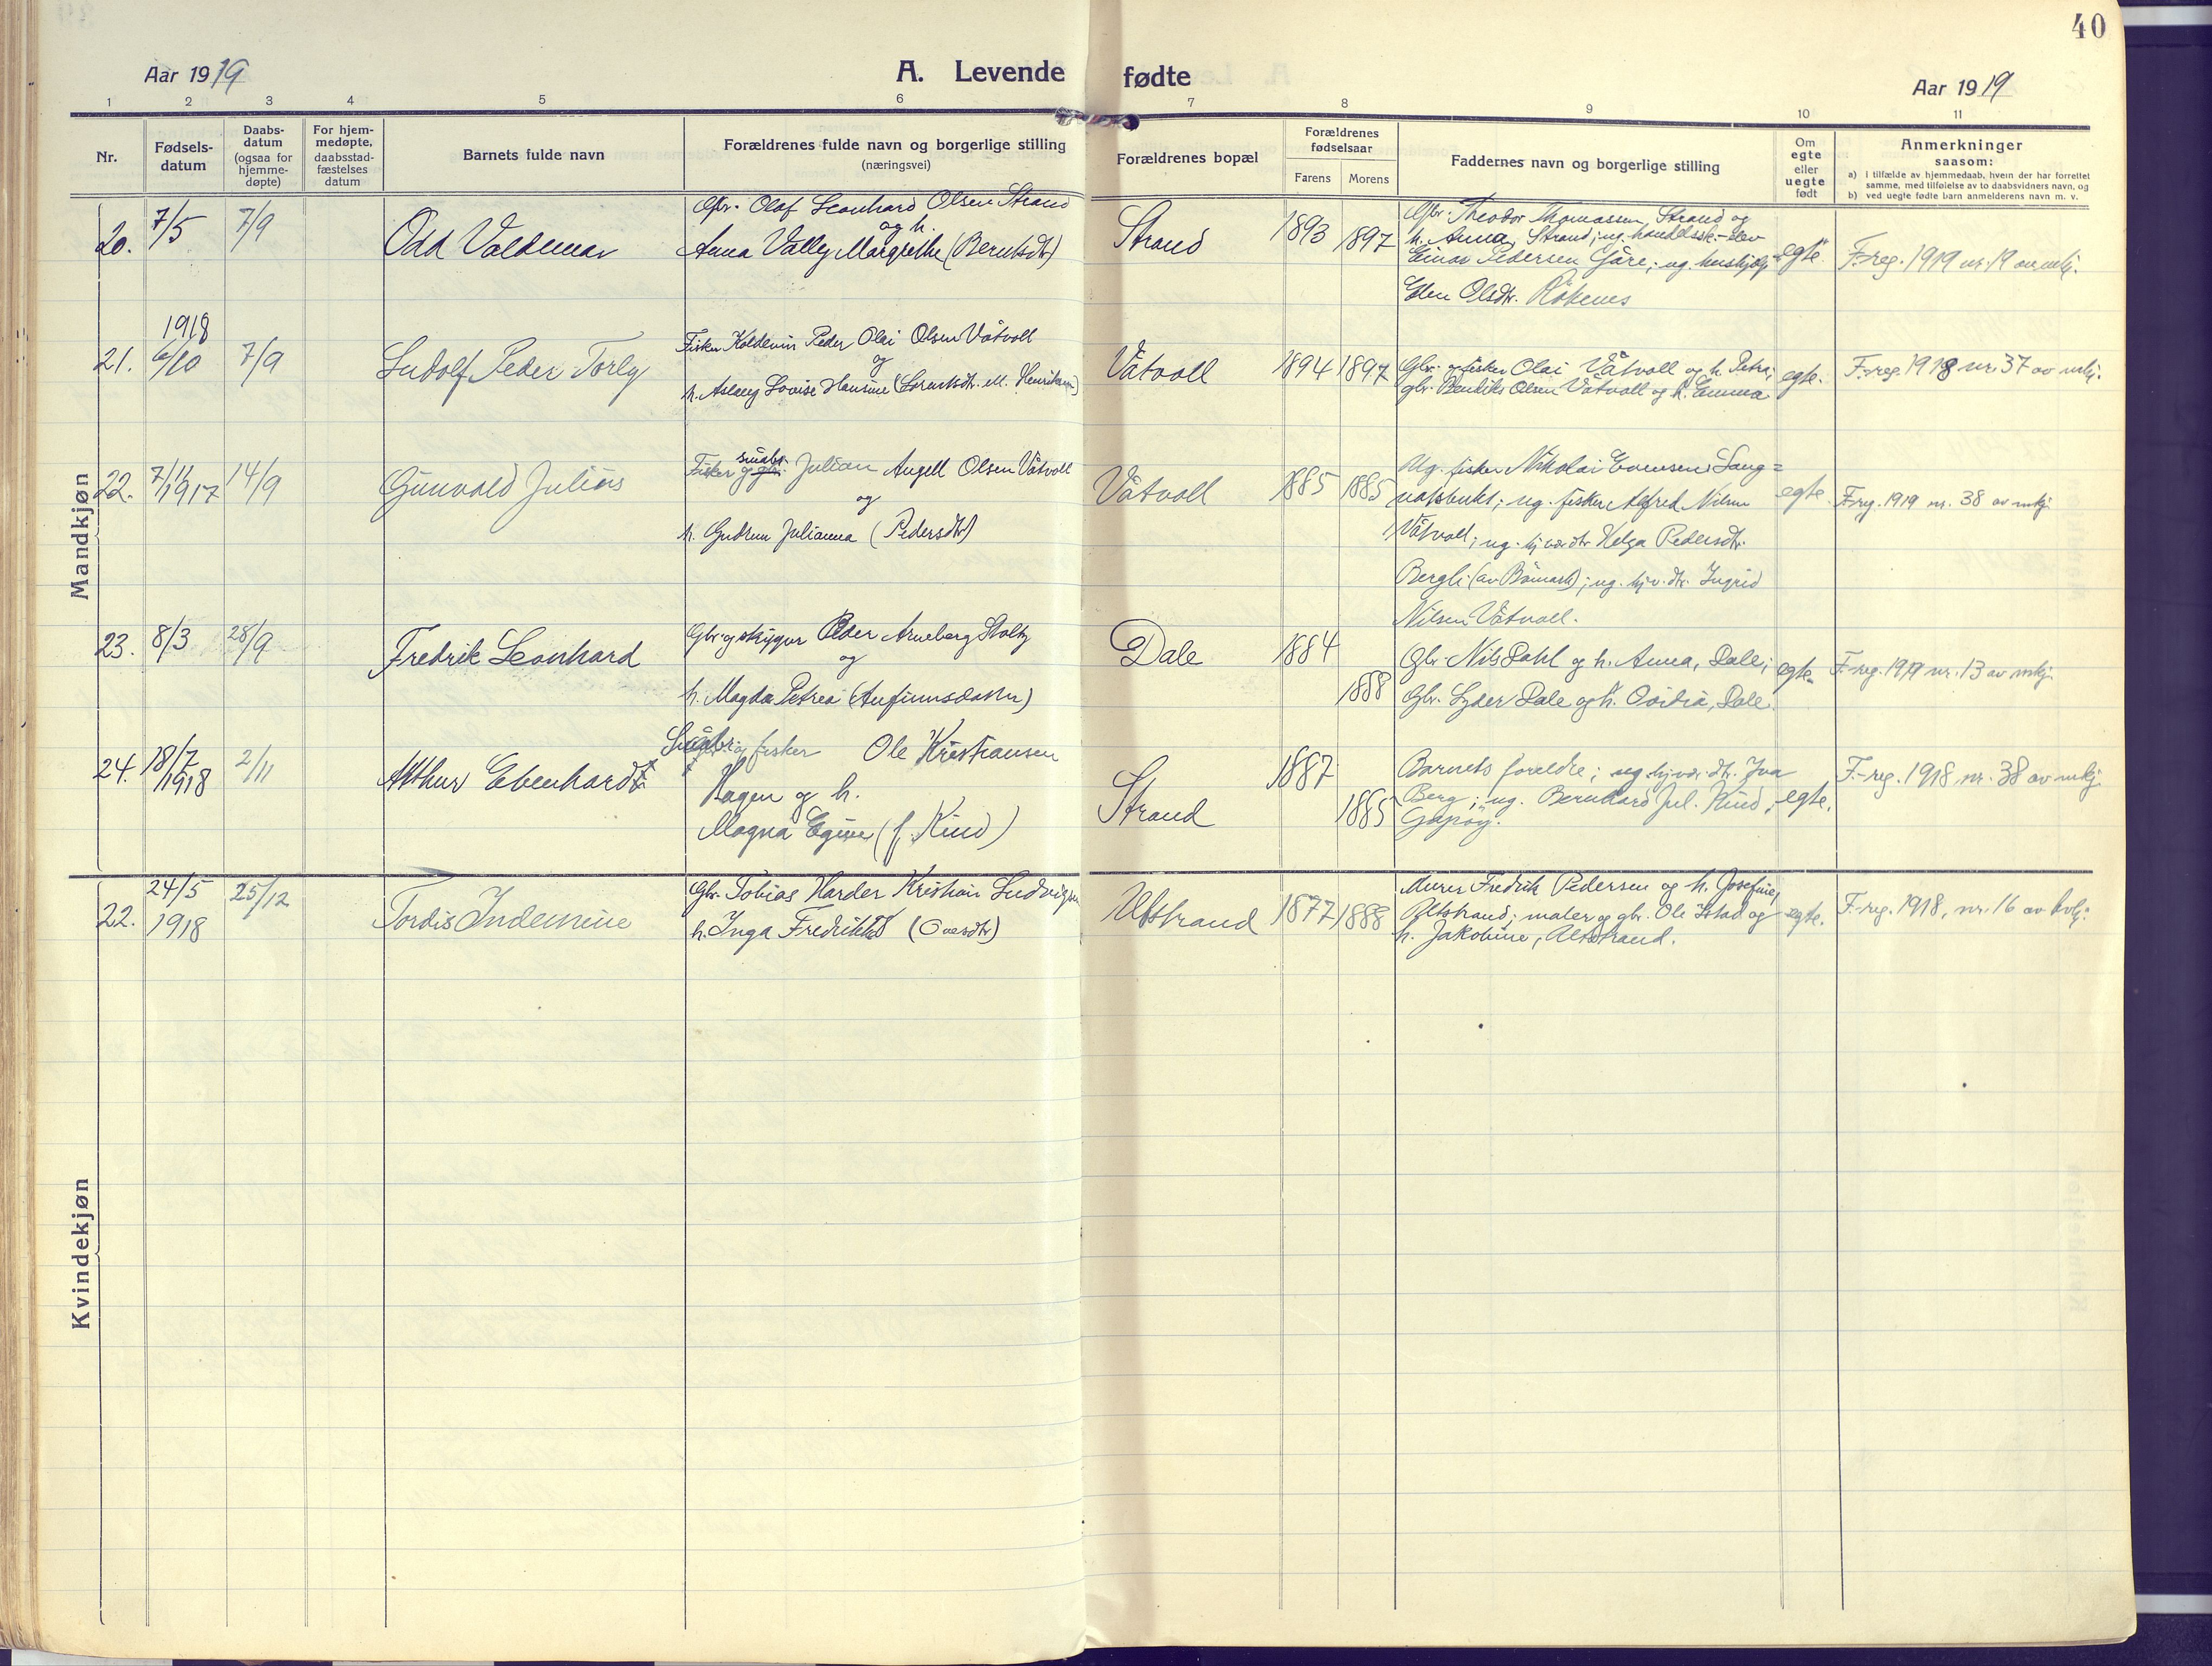 40
Aar 1919
A. Levende fødte
Aar 1919
1 2 3 4 5 6 7 8 9 10 11
Nr.
Fødsels-
datum
Daabs-
datum
(ogsaa for
hjemme-
døpte)
For hjem-
medøpte,
daabsstad-
fæstelses
datum
Barnets fulde navn
Forældrenes fulde navn og borgerlige stilling
(næringsvei)
Forældrenes bopæl
Forældrenes
fødselsaar
Farens Morens
Faddernes navn og borgerlige stilling
Om
egte
eller
uegte
født
Anmerkninger
saasom:
a) i tilfælde av hjemmedaab, hvem der har forrettet
samme, med tilføielse av to daabsvidners navn, og
b) ved uegte fødte barn anmelderens navn m. v.
Mandkjøn
20. 7/5 7/9 Odd Valdemar
Gbr. Olaf Leonhard Olsen Strand
og h.
Anna Vally Margrethe (Berntsdtr)
Strand 1893 1897
Gbr. Theodor Thomassen, Strand og
h. Anna, Strand; ug. handelssk.-elev
Einar Pedersen Gåre; ug. hushjelp
Elen Olsdtr. Rökenes
egte.
F.-reg. 1919 nr. 19 av mkj.
21. 1918
6/10 7/9 Ludolf Peder Torly
Fisker Koldevin Peder Olai Olsen Våtvoll
og
h. Aslaug Lovise Hansine (Lorentsdtr. ell. Henriksen)
Våtvoll 1894 1897
Gbr. og fisker Olai Våtvoll og h. Petra;
gbr. Bendiks Olsen Våtvoll og h. Emma
egte.
F.-reg. 1918 nr. 37 av mkj.
22. 7/11 1917 14/9 Gunvald Julius
småbr.
Fisker og gbr. Julian Angell Olsen Våtvoll
og
h. Gudrun Julianna (Pedersdtr)
Våtvoll 1885 1885
Ug. fisker Nikolai Evensen, Lang=
; ug. fisker Alfred Nilsen
Våtvoll; ug. hj.vær. dtr. Helga Pedersdtr.
Bergli (av Römark); ug. hj.v. dtr. Ingrid
Nilsen Våtvoll.
egte.
F.-reg. 1919 nr. 38 av mkj.
23. 8/3 28/9 Fredrik Leonhard
Gbr. og skipper Peder Arneberg Stoltz
og
h. Magda Petrea (Anfinnsdatter)
Dale 1884
1888
Gbr. Nils Dahl og h. Anna, Dale;
Gbr. Lyder Dale og h. Ovidia, Dale.
egte.
F.-reg. 1919 nr. 13 av mkj.
24. 18/7 1918 2/11 Arthur Ebenhardt
Småbr. og fisker Ole Kristiansen
Hagen og h.
Magna Egine (f. Kind)
Strand 1887
1885
Barnets foreldre; ug. hj.vær. dtr. Iva
Berg; ug. Bernhard Jul. Kind,
Gapöy.
egte.
F.-reg. 1918 nr. 38 av mkj.
Kvindekjøn
22. 24/5
1918 25/12 Tordis Indemine
Gbr. Tobias Harder Kristian Ludvigsen
h. Inga Fredrikke (Ovesdtr)
Altstrand 1877 1888
Murer Fredrik Pedersen og h. Josefine,
Altstrand; maler og gbr. Ole Istad og
h. Jakobine, Altstrand.
egte.
F.-reg. 1918, nr. 16 av kvkj.